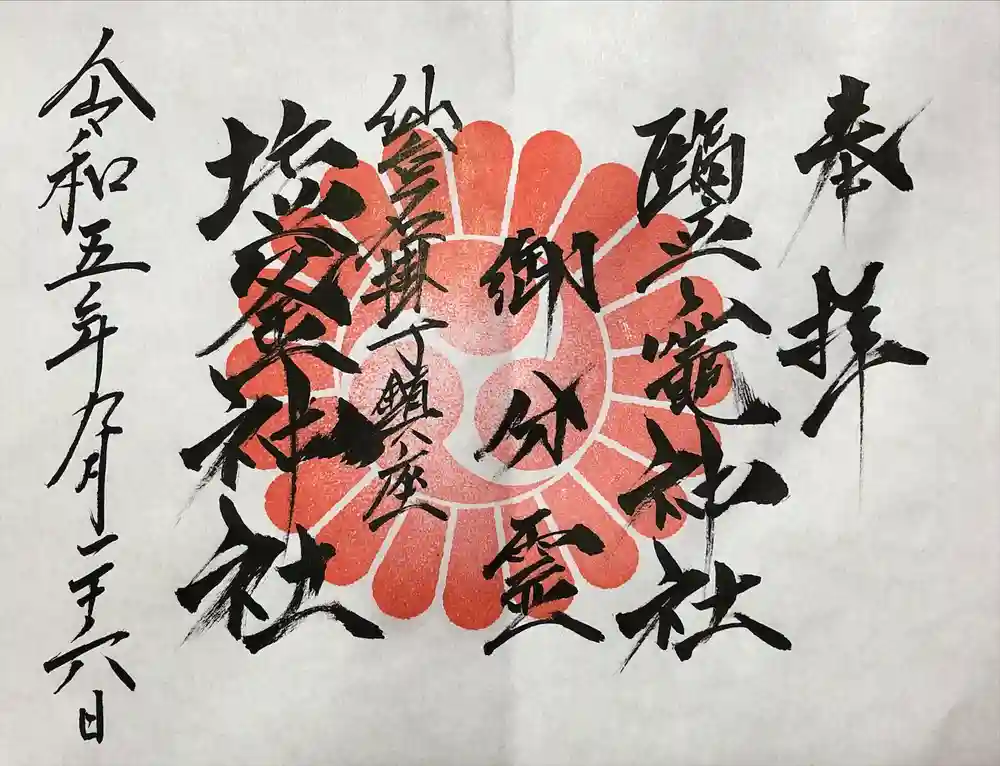 奉拝
鹽竈神社
御分霊
仙臺名掛丁鎮座
塩釜神社
令和五年九月二十六日